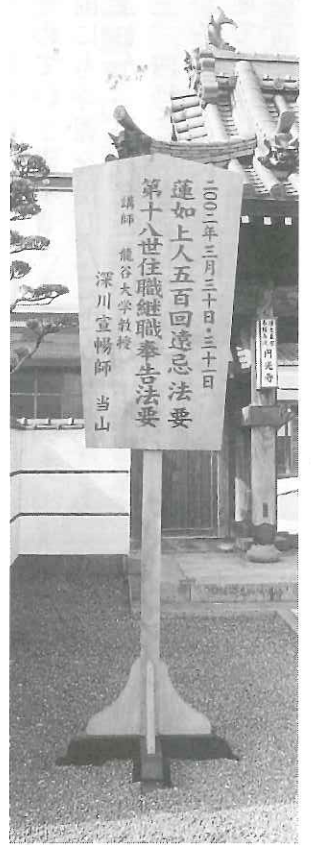 二〇〇二年三月三十日・三十一日
蓮如上人五百回遠忌法要
第十八世住職継職奉告法要
講師 龍谷大学教授
深川宣暢師 当山
円光寺